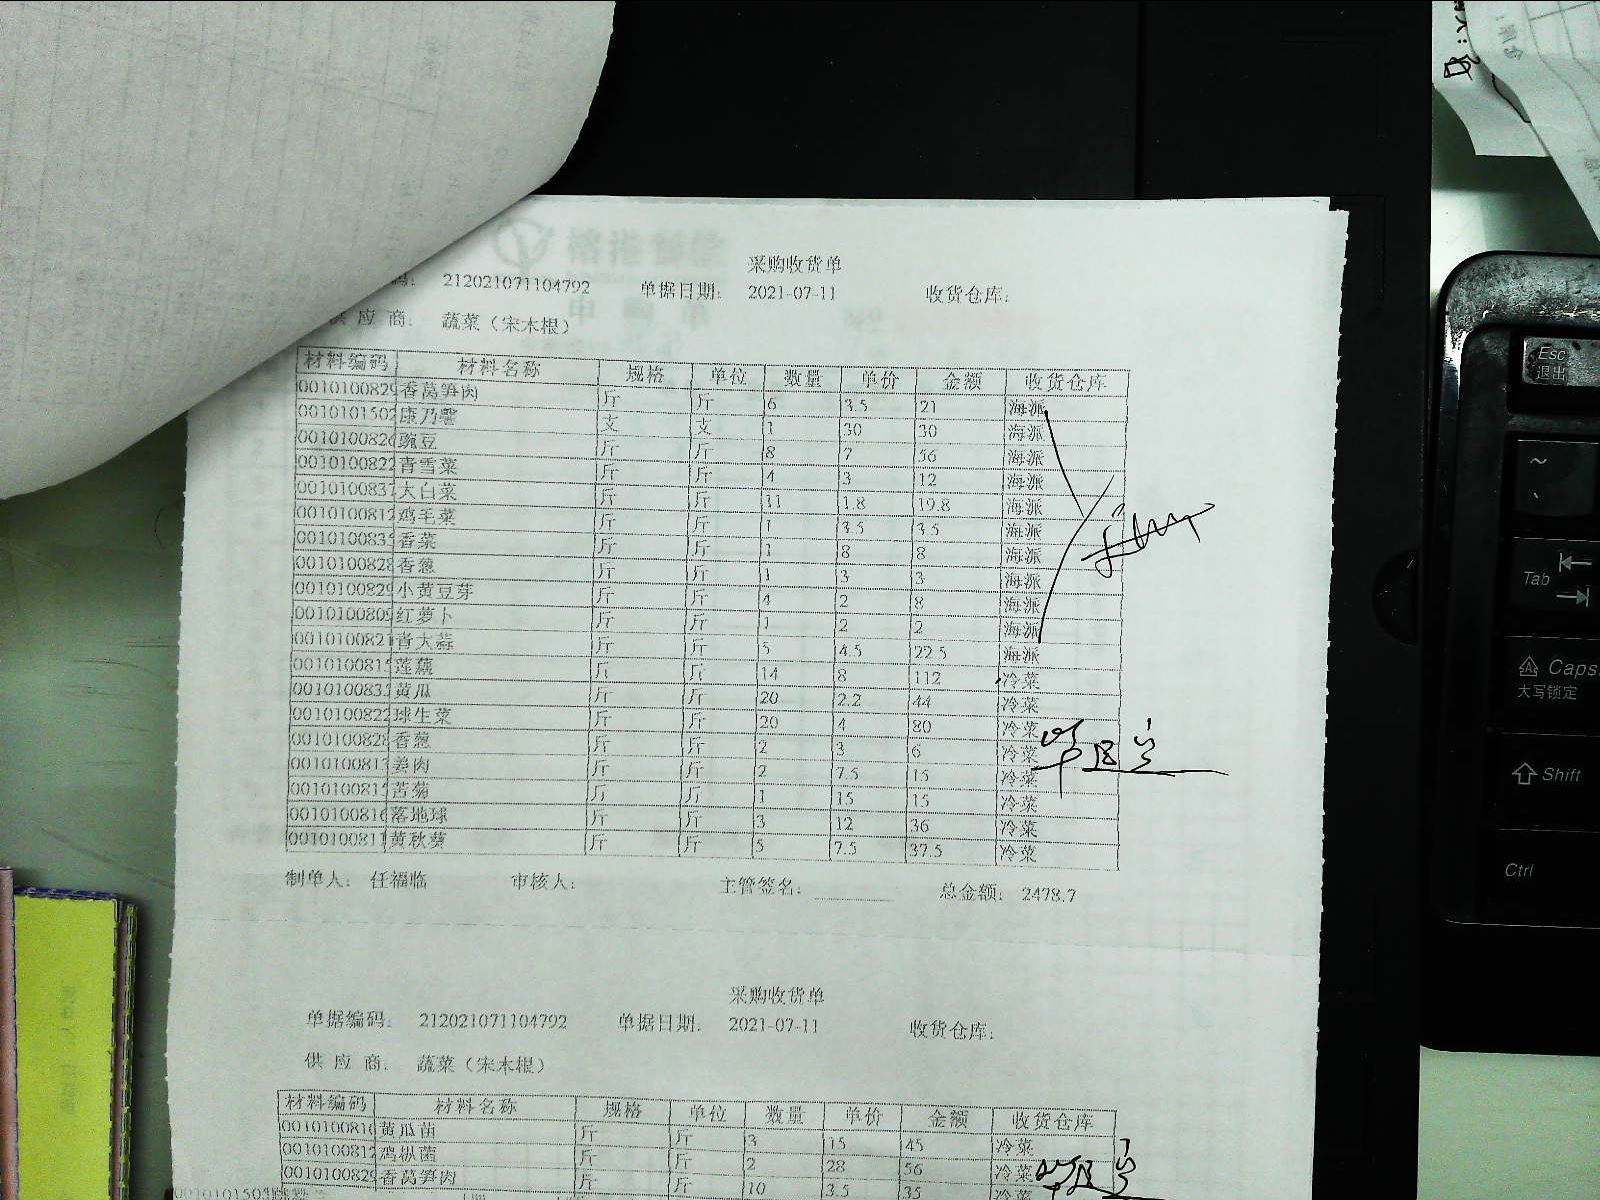 采购收货单
码： 212021071104792 单据日期： 2021-07-11 收货仓库：
供 应 商： 蔬菜（宋木根）
材料编码 材料名称 规格 单位 数量 单价 金额 收货仓库
0010100829 香莴笋肉 斤 斤 6 3.5 21 海派
0010101502 康乃馨 支 支 1 30 30 海派
0010100826 豌豆 斤 斤 8 7 56 海派
0010100822 青雪菜 斤 斤 4 3 12 海派
0010100837 大白菜 斤 斤 11 1.8 19.8 海派
0010100812 鸡毛菜 斤 斤 1 3.5 3.5 海派
0010100835 香菜 斤 斤 1 8 8 海派
0010100828 香葱 斤 斤 1 3 3 海派
0010100829 小黄豆芽 斤 斤 4 2 8 海派
0010100809 红萝卜 斤 斤 1 2 2 海派
0010100821 青大蒜 斤 斤 5 4.5 22.5 海派
0010100815 莲藕 斤 斤 14 8 112 冷菜
0010100833 黄瓜 斤 斤 20 2.2 44 冷菜
0010100822 球生菜 斤 斤 20 4 80 冷菜
0010100828 香葱 斤 斤 2 3 6 冷菜
0010100813 姜肉 斤 斤 2 7.5 15 冷菜
0010100815 苦菊 斤 斤 1 15 15 冷菜
0010100816 落地球 斤 斤 3 12 36 冷菜
0010100811 黄秋葵 斤 斤 5 7.5 37.5 冷菜
制单人： 任福临 审核人： 主管签名： 总金额： 2478.7
采购收货单
单据编码： 212021071104792 单据日期： 2021-07-11 收货仓库：
供 应 商： 蔬菜（宋木根）
材料编码 材料名称 规格 单位 数量 单价 金额 收货仓库
0010100810 黄瓜苗 斤 斤 3 15 45 冷菜
0010100812 鸡枞菌 斤 斤 2 28 56 冷菜
0010100829 香莴笋肉 斤 斤 10 3.5 35 冷菜
Esc
退出
~
Tab
Caps
大写锁定
Shift
Ctrl